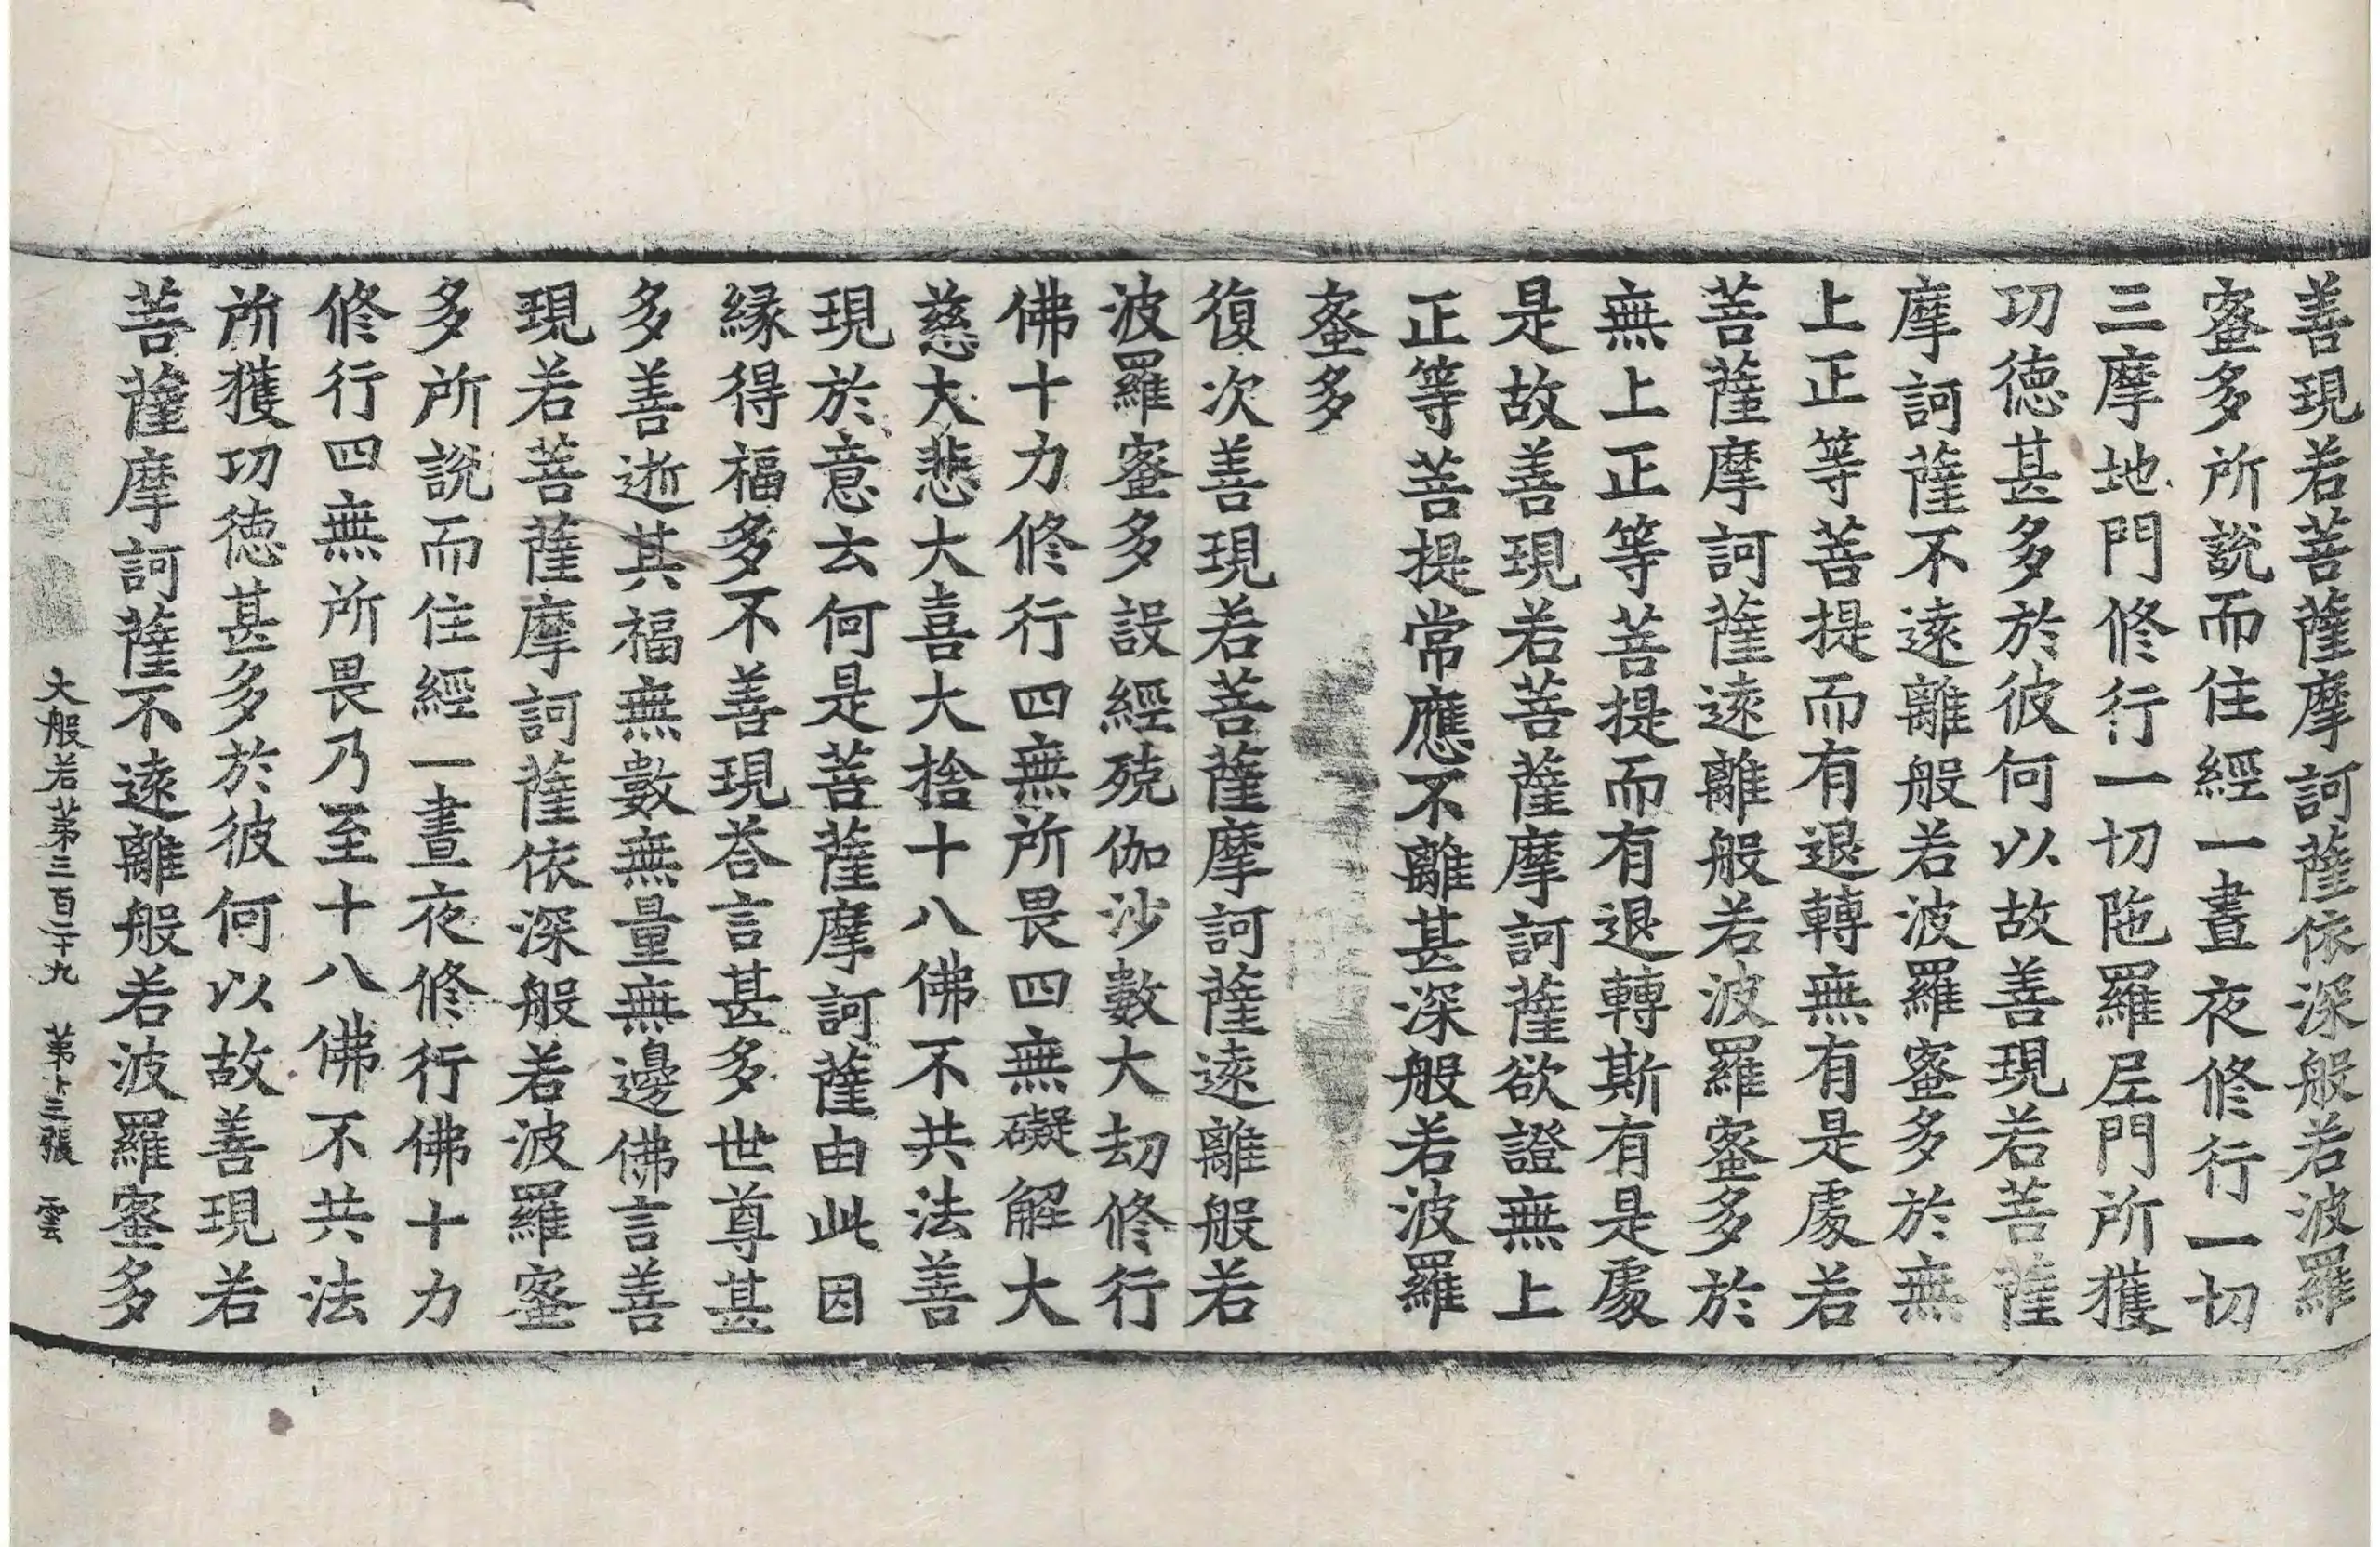 善現若菩薩摩訶薩依深般若波羅
蜜多所說而住經一晝夜修行一切
三摩地門修行一切陁羅尼門所獲
功德甚多於彼何以故善現若菩薩
摩訶薩不遠離般若波羅蜜多於無
上正等菩提而有退轉無有是處若
菩薩摩訶薩遠離般若波羅蜜多於
無上正等菩提而有退轉斯有是處
是故善現若菩薩摩訶薩欲證無上
正等菩提常應不離甚深般若波羅
蜜多
復次善現若菩薩摩訶薩遠離般若
波羅蜜多設經殑伽沙數大劫修行
佛十力修行四無所畏四無礙解大
慈大悲大喜大捨十八佛不共法善
現於意云何是菩薩摩訶薩由此因
緣得福多不善現荅言甚多世尊甚
多善逝其福無數無量無邊佛言善
現若菩薩摩訶薩依深般若波羅蜜
多所說而住經一晝夜修行佛十力
修行四無所畏乃至十八佛不共法
所獲功德甚多於彼何以故善現若
菩薩摩訶薩不遠離般若波羅蜜多
大般若第三百二十九 第十三張 雲